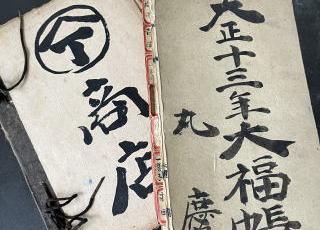 大正十三年大福帳
丸
商店